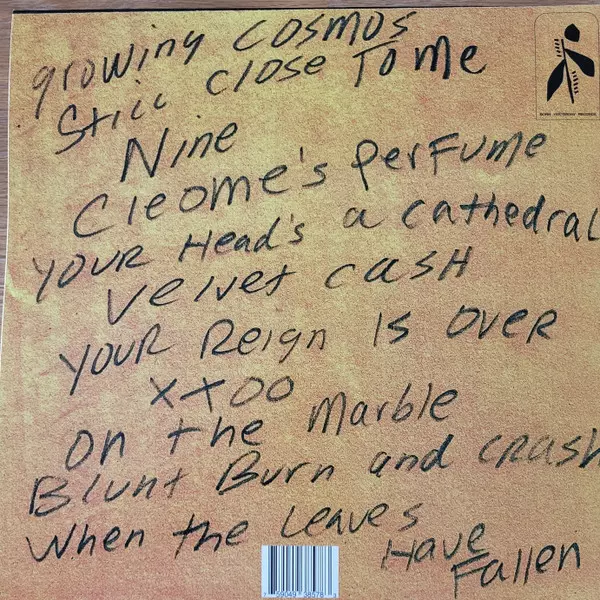 growing COSMOS
Still Close To Me
Nine
Cleome's Perfume
YOUR Head's a cathedral
Velvet cash
YOUR Reign IS OVER
XXOO
On the Marble
Blunt Burn and CRASH
When the Leaves
Have
Fallen